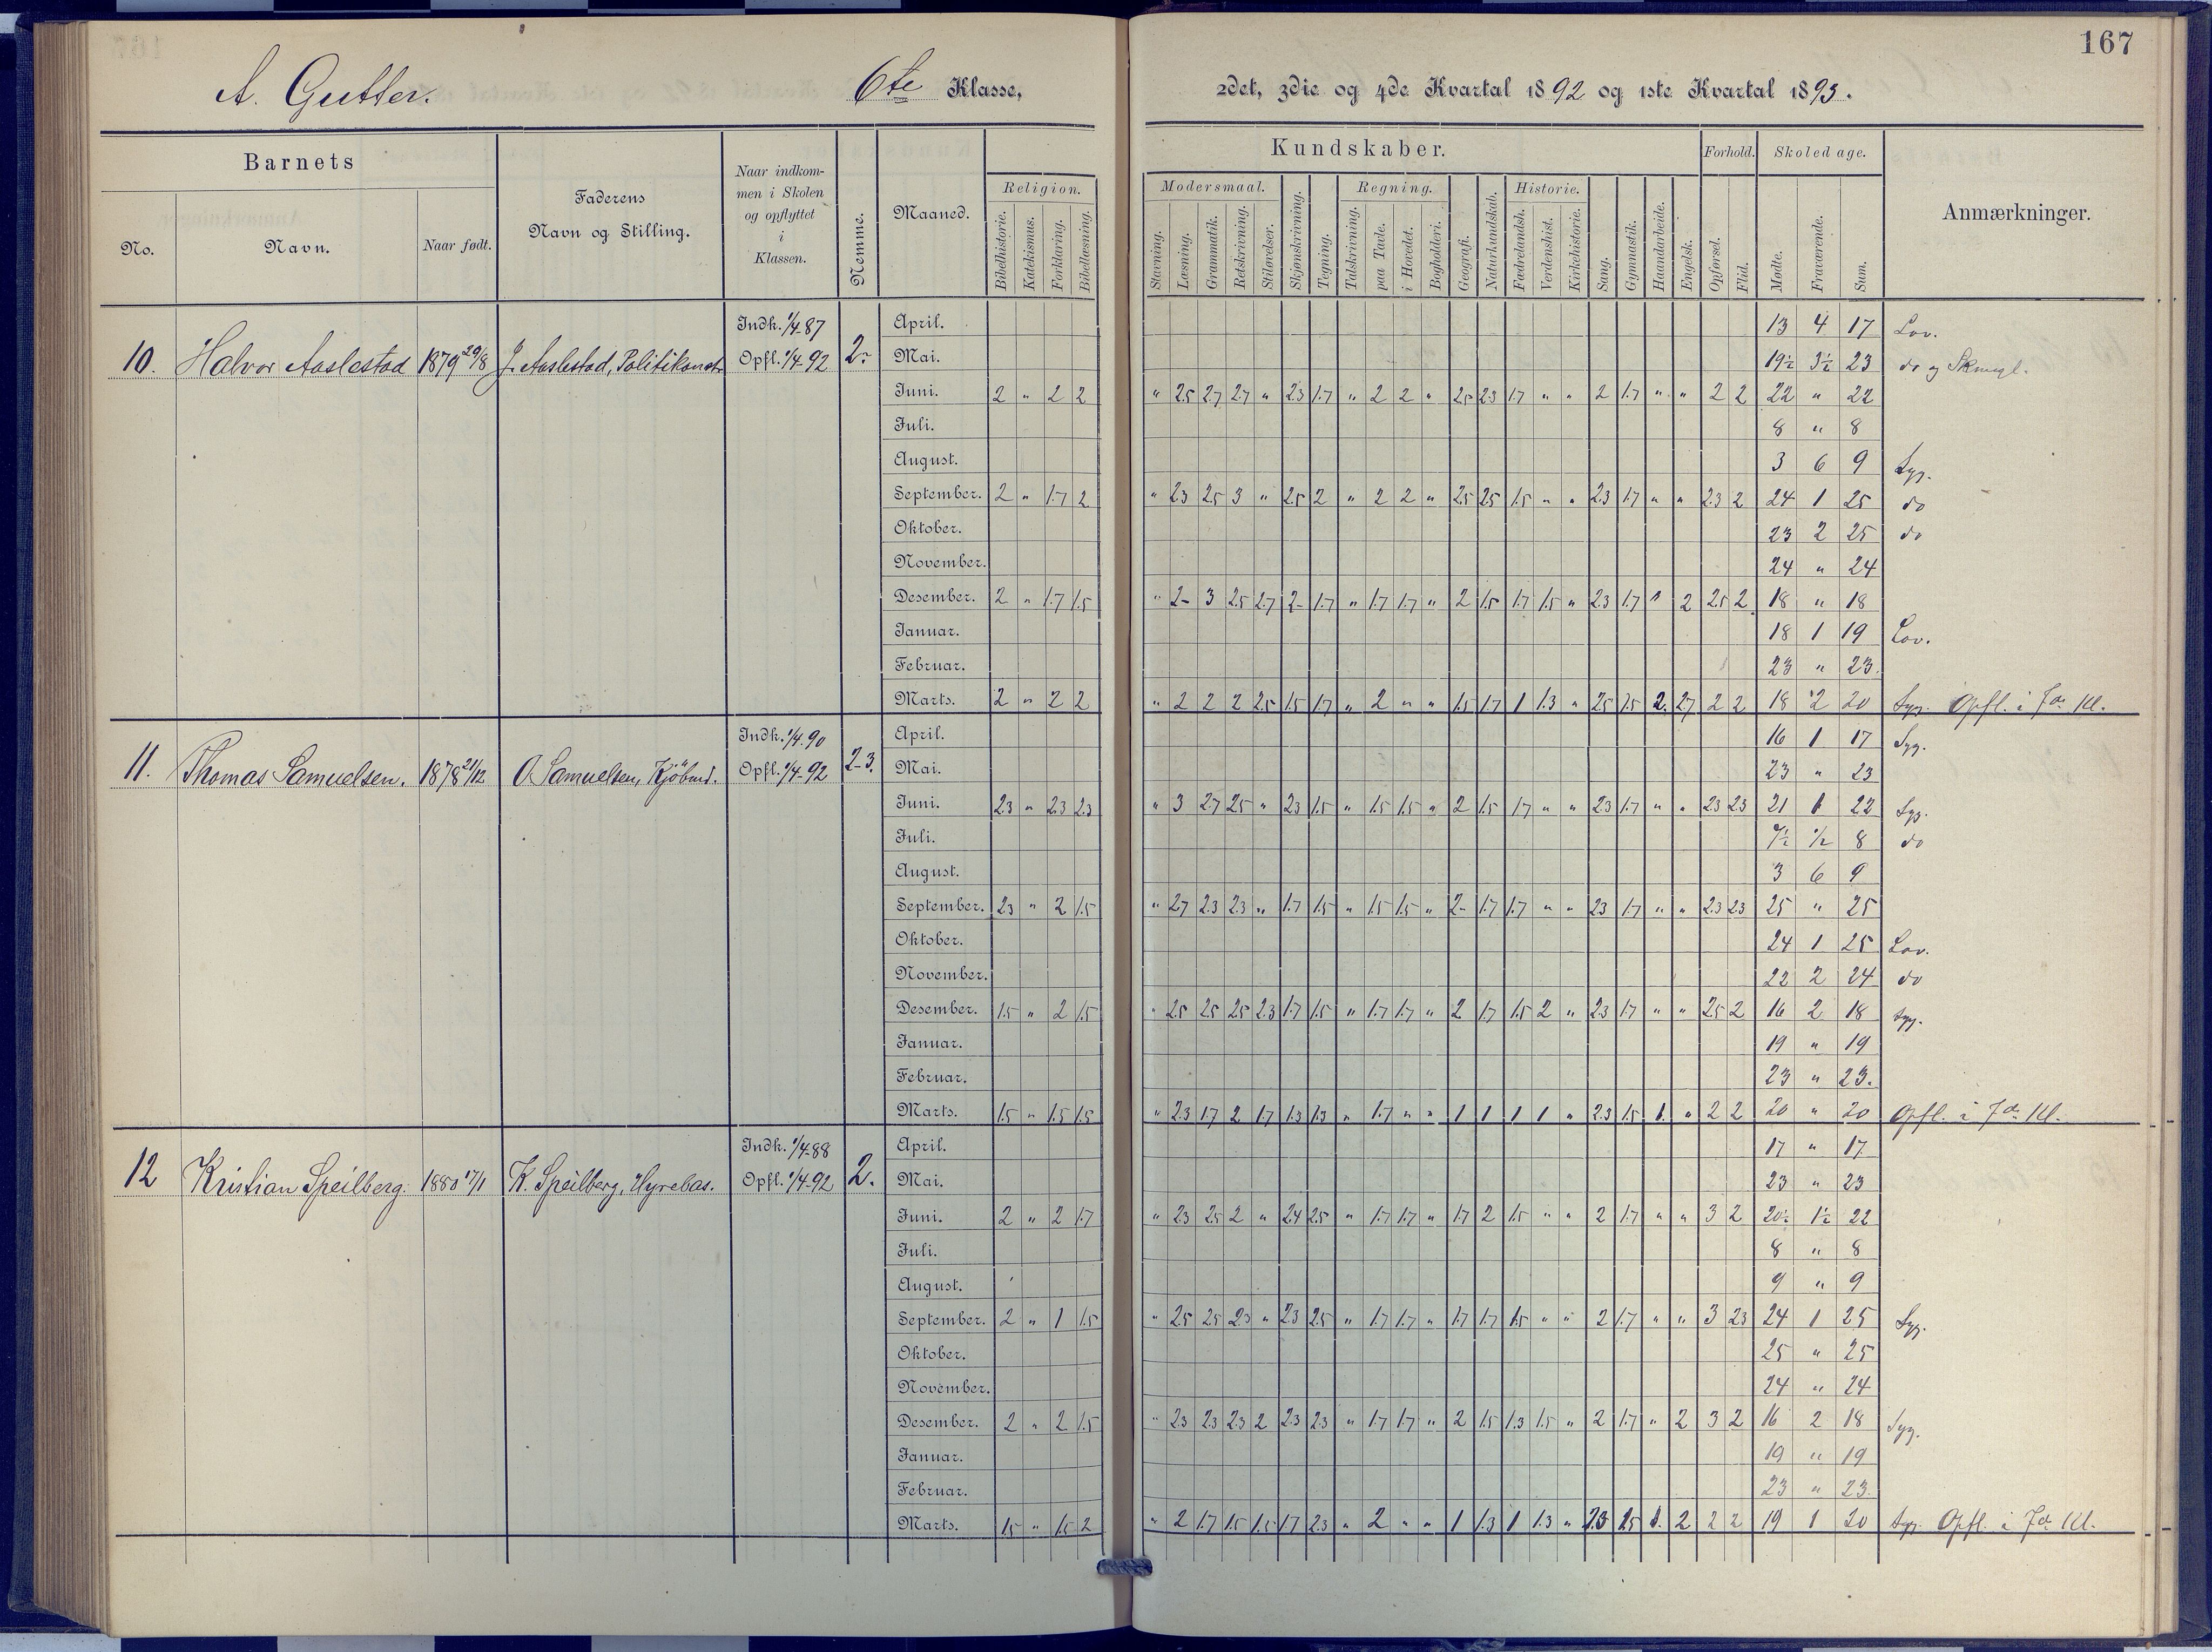 167
A. Gutter. 6te Klasse, 2det, 3die og 4de Kvartal 1892 og 1ste Kvartal 1893.
Barnets
No. Navn. Naar født.
Faderens
Navn og Stilling.
Naar indkom-
men i Skolen
og opflyttet
i
Klassen.
Nemme.
Maaned.
Kundskaber.
Religion.
Bibelhistorie. Katekismus. Forklaring. Bibellæsning.
Modersmaal.
Stavning. Læsning. Grammatik. Retskrivning. Stiløvelser.
Skjønskrivning. Tegning.
Regning.
Talskrivning. paa Tavle. i Hovedet. Bogholderi.
Geografi. Naturkundskab.
Historie.
Fædrelandsh. Verdenshist. Kirkehistorie.
Sang. Gymnastik. Haandarbeide. Engelsk.
Forhold.
Opførsel. Flid.
Skoledage.
Mødte. Fraværende. Sum.
Anmærkninger.
10. Halvor Aaslestad 1879 29/8 J. Aaslestad, Politikonst. Indk. 1/4-87 Opfl. 1/4-92 2.
April. 13 4 17 Lov.
Mai. 19½ 3½ 23 do og
Juni. 2 " 2 2 " 2.5 2.7 2.7 " 2.3 1.7 " 2 2 " 2.5 2.3 1.7 " " 2 1.7 " " 2 2 22 " 22
Juli. 8 " 8
August. 3 6 9 Syg.
September. 2 " 1.7 2 " 2.3 2.5 3 " 2.5 2 " 2 2 " 2.5 2.5 1.5 " " 2.3 1.7 " " 2.3 2 24 1 25 do
Oktober. 23 2 25 do
November. 24 " 24
Desember. 2 " 1.7 1.5 " 2- 3 2.5 2.7 2- 1.7 " 1.7 1.7 " 2 1.5 1.7 1.5 " 2.3 1.7 " 2 2.5 2 18 " 18
Januar. 18 1 19 Lov.
Februar. 23 " 23.
Marts. 2 " 2 2 " 2 2 2 2.5 1.5 1.7 " 2 " " 1.5 1.7 1 1.3 " 2.5 1.5 2. 2.7 2 2 18 2 20 Syg. Opfl. i 7de Kl.
11. Thomas Samuelsen. 1878 21/12 O. Samuelsen, Kjöbmd. Indk. 1/4-90 Opfl. 1/4-92 2-3.
April. 16 1 17 Syg.
Mai. 23 " 23
Juni. 2.3 " 2.3 2.3 " 3 2.7 2.5 " 2.3 1.5 " 1.5 1.5 " 2 1.5 1.7 " " 2.3 1.7 " " 2.3 2.3 21 1 22 Syg.
Juli. 7½ ½ 8 do
August. 3 6 9
September. 2.3 " 2 1.5 " 2.7 2.3 2.3 " 1.7 1.5 " 1.5 1.5 " 2- 1.7 1.7 " " 2.3 1.7 " " 2.3 2.3 25 " 25
Oktober. 24 1 25 Lov.
November. 22 2 24 do
Desember. 1.5 " 2 1.5 " 2.5 2.5 2.5 2.3 1.7 1.5 " 1.7 1.7 " 2 1.7 1.5 2 " 2.3 1.7 " " 2.5 2 16 2 18 Syg.
Januar. 19 " 19
Februar. 23 " 23.
Marts. 1.5 " 1.5 1.5 " 2.3 1.7 2 1.7 1.3 1.3 " 1.7 " " 1 1 1 1 " 2.3 1.5 1. " 2 2 20 " 20 Opfl. i 7de Kl.
12 Kristian Speilberg. 1880 17/1 K. Speilberg, Hyrebas. Indk. 1/4-88 Opfl. 1/4-92 2.
April. 17 " 17.
Mai. 23 " 23
Juni. 2 " 2 1.7 " 2.3 2.5 2 " 2.4 2.5 " 1.7 1.7 " 1.7 2 1.5 " " 2 1.7 " " 3 2 20½ 1½ 22
Juli. 8 " 8
August. 9 " 9
September. 2 " 1 1.5 " 2.5 2.5 2.3 " 2.3 2.5 " 1.7 1.7 " 1.7 1.7 1.5 " " 2 1.7 " " 3 2.3 24 1 25 Syg.
Oktober. 25 " 25
November. 24 " 24
Desember. 2 " 2 1.5 " 2.3 2.3 2.3 2 2.3 2.3 " 1.7 1.7 " 2 1.5 1.3 1.5 " 2 1.7 " 2 3 2 16 2 18 Syg.
Januar. 19 " 19
Februar. 23 " 23.
Marts. 1.5 " 1.5 2 " 2 1.7 1.5 1.5 1.7 2.3 " 2 " " 1 1.3 1 1.3 " 2.3 2.5 1. 2 2 2 19 1 20 Syg. Opfl. i 7de Kl.